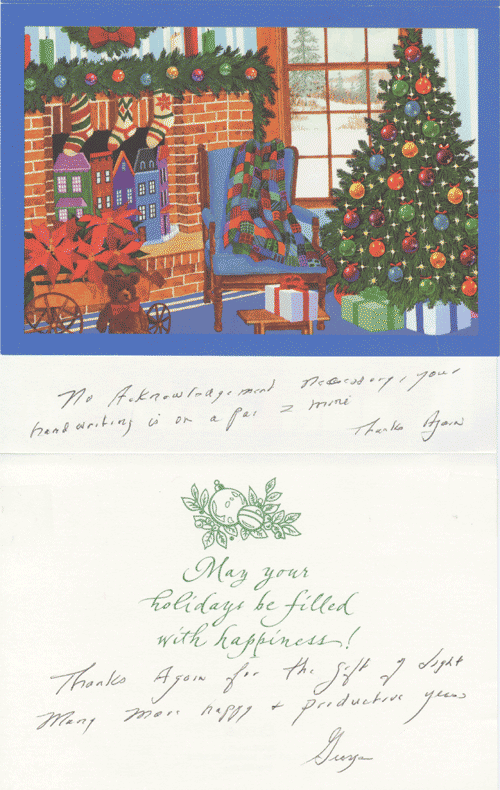 No Acknowledgement Necessary, your
handwriting is on a par z mine
Thanks Again
May your
holidays be filled
with happiness!
Thanks Again for the gift of sight
Many more happy + productive years